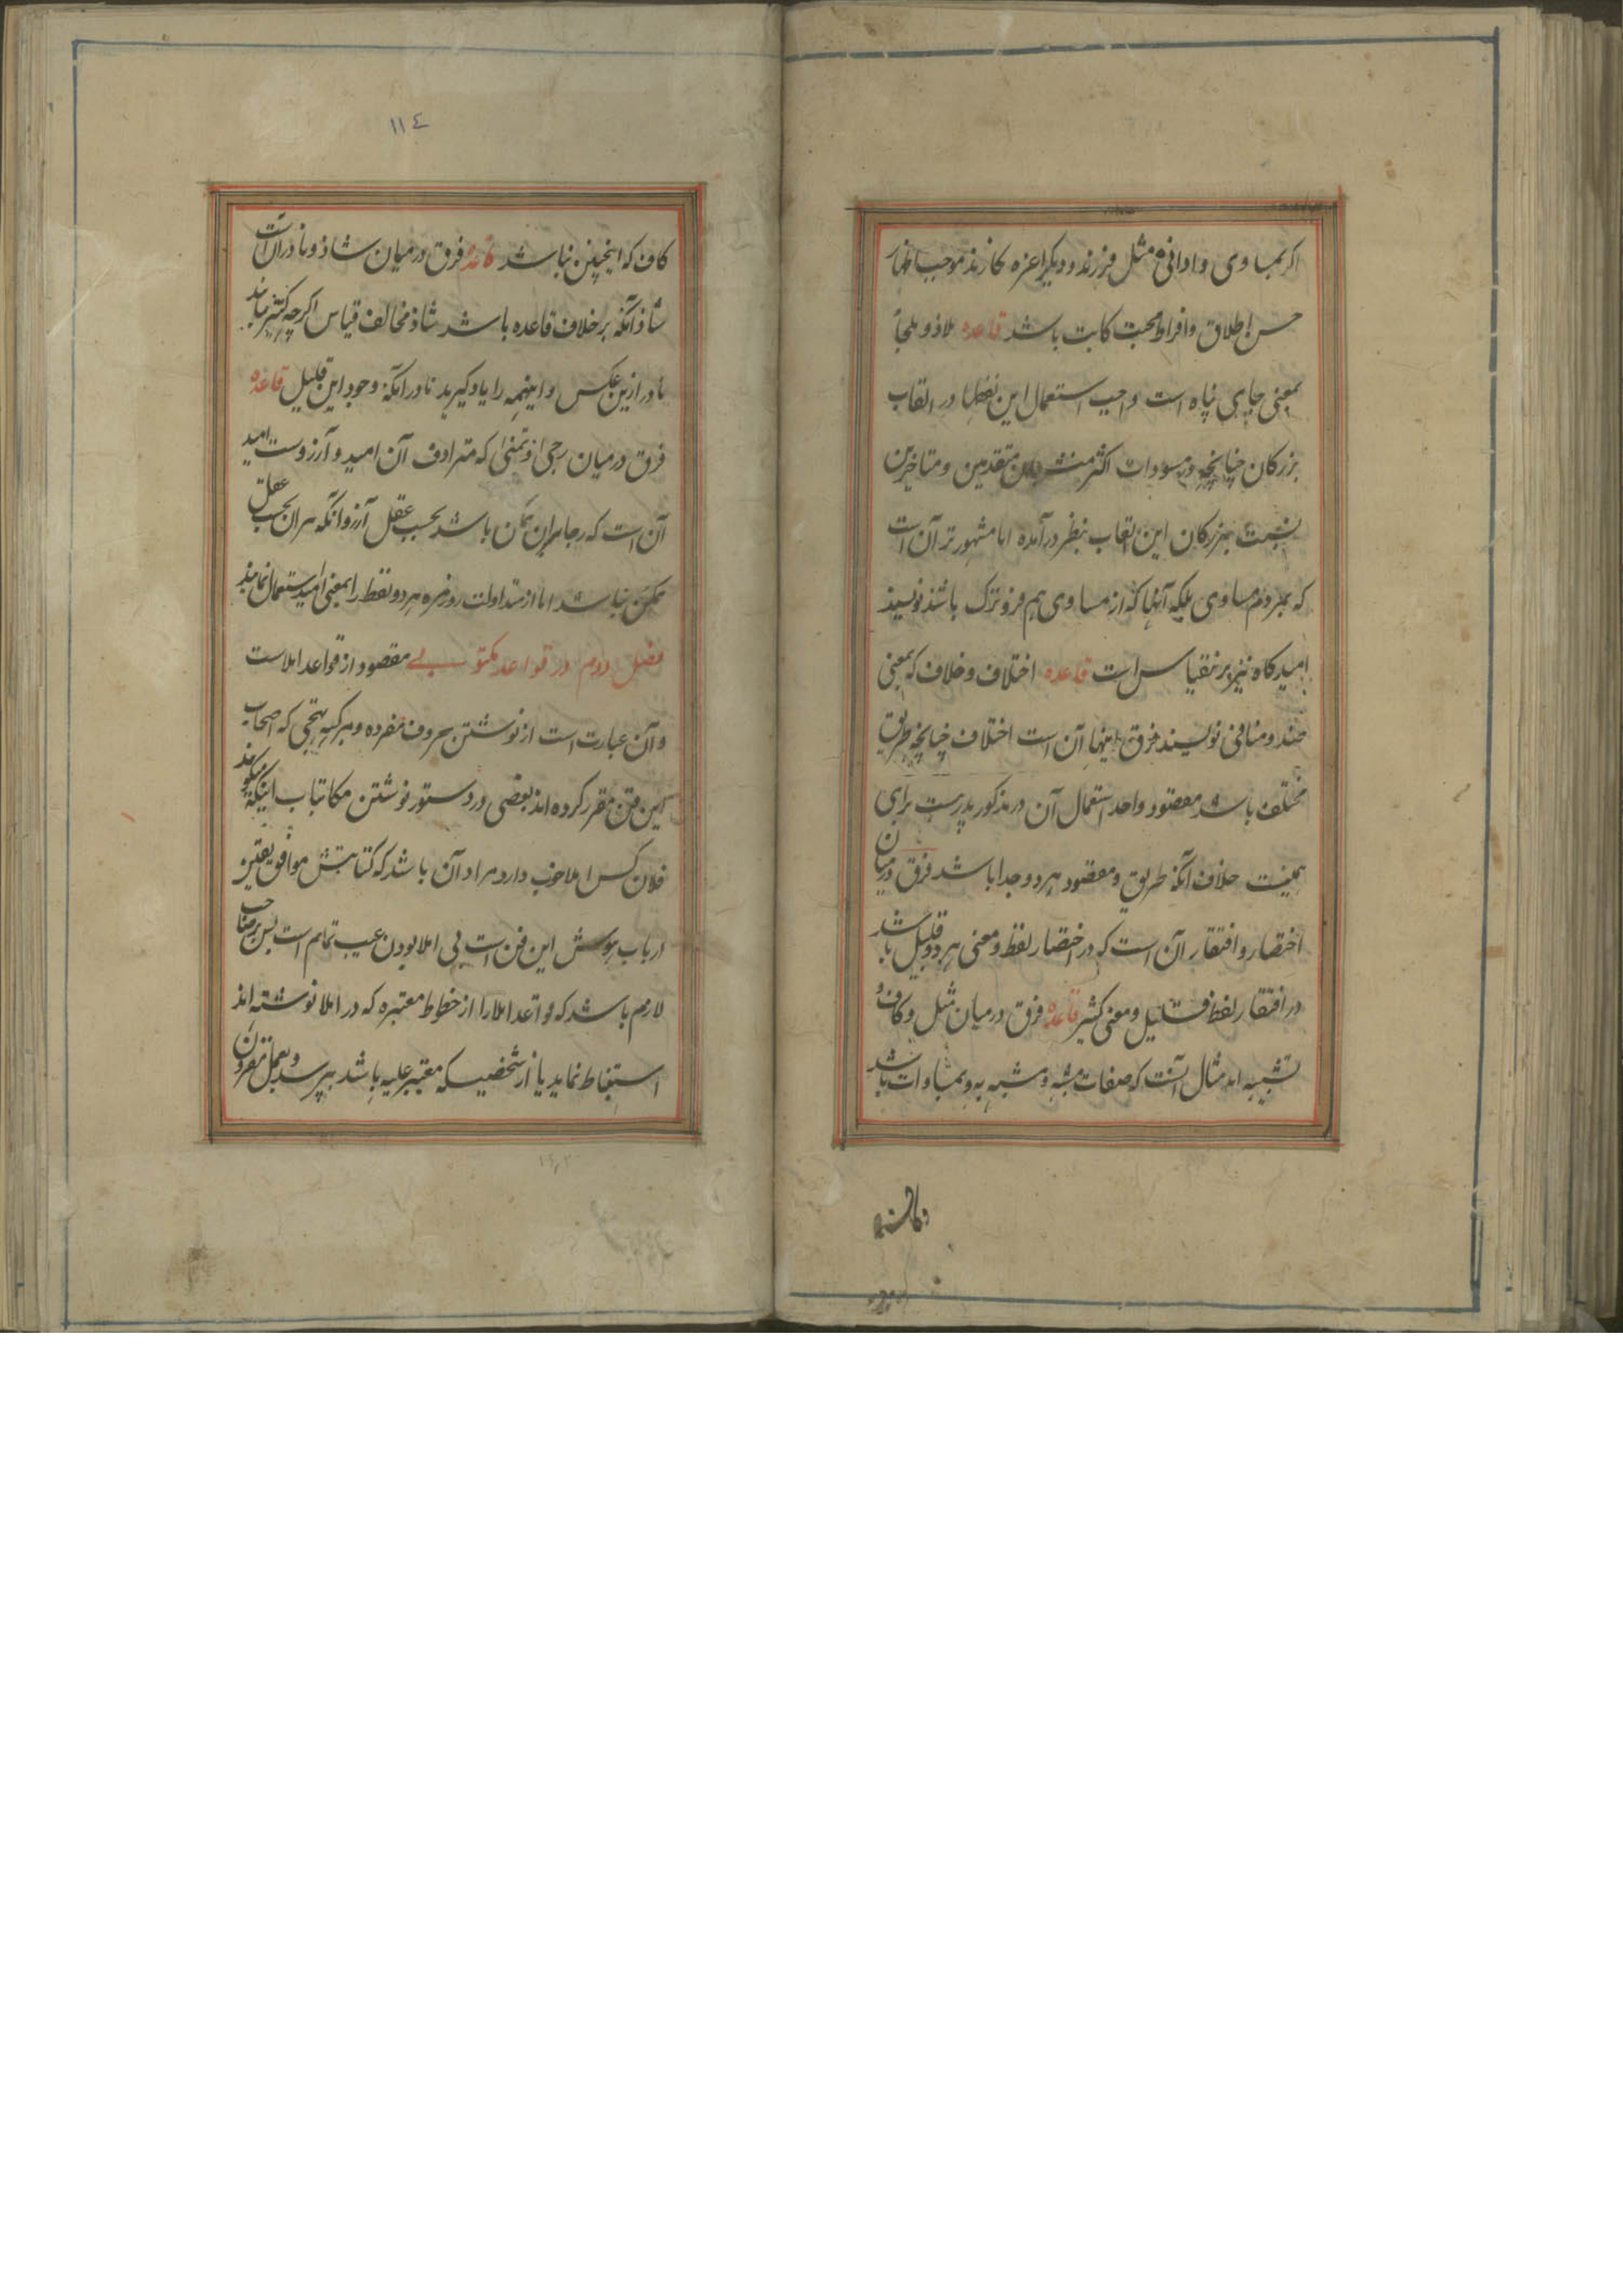 اگر بمساوی و ادانی مثل فرزند و دیگر اعزه نگارند موجب اظهار
حسن اطلاق و افراط محبت کاتب باشد قاعده ملاذ و ملجأ
بمعنی جای پناه است واجب استعمال این لفظها در القاب
بزرگان چنانچه در مسودات اکثر منشیان متقدمین و متاخرین
نسبت ببزرگان این القاب بنظر درآمده اما مشهورتر آن است
که بمردم مساوی بلکه آنها که از مساوی هم فروترک باشند نویسند
امیدگاه نیز برینقیاس است قاعده اختلاف و خلاف که بمعنی
ضد و منافی نویسند فرق اینها آن است اختلاف چنانچه طریق
مختلف باشد مقصود واحد استعمال آن در مذکور بدرست برای
همینست خلاف آنکه طریق و مقصود هردو جدا باشد فرق درمیان
اختصار و افتقار آن است که در اختصار لفظ و معنی هردو قلیل باشد
در افتقار لفظ قلیل و معنی کثیر قاعده فرق درمیان مثل و کاف و
تشبیه اند مثال آنست که صفات مشبه و مشبه به و بمساوات باشد
۱۱٤
کاف که اینچنین نباشد قاعده فرق درمیان شاذ و نادر آن است
شاذ آنکه برخلاف قاعده باشد شاذ مخالف قیاس اگرچه کثیر باشد
نادر ازین عکس و اینهمه را یاد گیرید نادر آنکه وجود این قلیل قاعده
فرق درمیان رجی و تمنی که مترادف آن امید و آرزوست امید
آن است که رجا بران ممکن باشد بحسب عقل آرزو آنکه سران بحسب عقل
ممکن نباشد اما از متداولت روزمره هردو لفظ را بمعنی امید استعمال نمایند
فصل دوم در قواعد مکتوبی مقصود از قواعد املاست
و آن عبارت است از نوشتن حروف مفرده و مرکبه بهجی که اصحاب
این فن مقرر کرده اند بعضی در دستور نوشتن مکاتبات اینکه میگویند
فلان کس املا خوب دارد مراد آن باشد که کتابتش موافق یقین
ارباب هوش این فن است بی املا بودن عیب تمام است پس برصاحب
لازم باشد که قواعد املا را از خطوط معتبره که در املا نوشته اند
استنباط نماید یا از شخصیکه معتبر علیه باشد بپرسد و بعمل مقرون